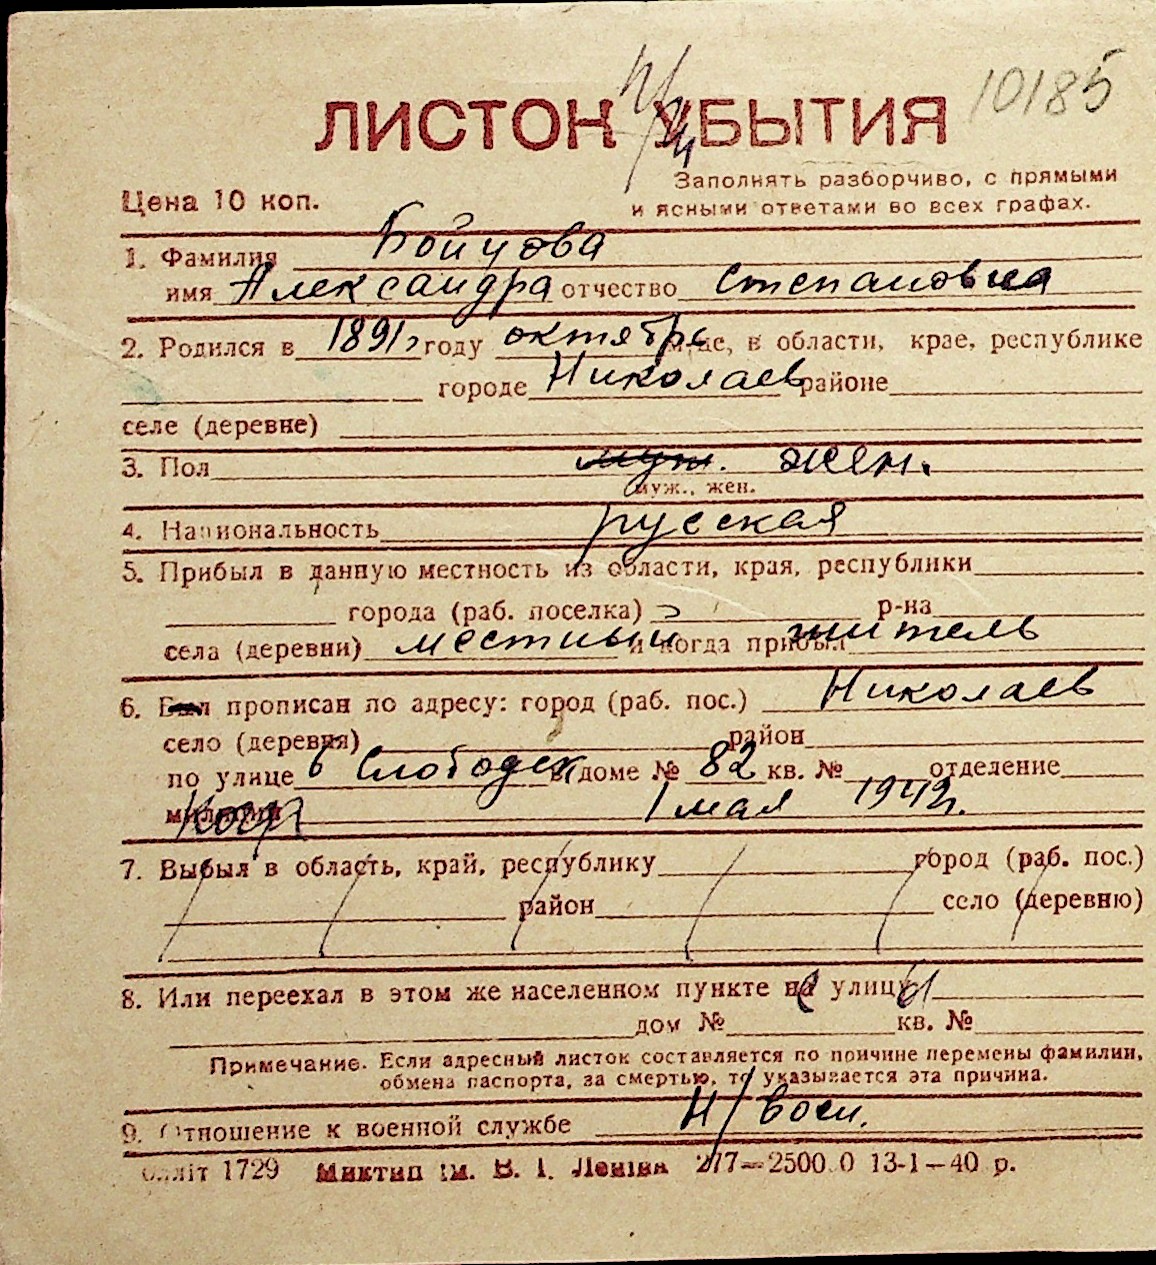 10185
ЛИСТОК УБЫТИЯ
Заполнять разборчиво, с прямыми
Цена 10 коп.
и ясными ответами во всех графах.
1. Фамилия Бойцова
имя Александра отчество Степановна
2. Родился в 1891 г году октябре м-це, в области, крае, республике
городе Николаев районе
селе (деревне)
3. Пол муж. жен.
муж., жен.
4. Национальность русская
5. Прибыл в данную местность из области, края, республики
города (раб. поселка) р-на
села (деревни) местный и когда прибыл житель
6. Был прописан по адресу: город (раб. пос.) Николаев
село (деревня) район
по улице 6 Слободск в доме № 82 кв. № отделение
милиции 1 мая 1942 г.
7. Выбыл в область, край, республику город (раб. пос.)
район село (деревню)
8. Или переехал в этом же населенном пункте на улицу
дом № кв. №
Примечание. Если адресный листок составляется по причине перемены фамилии,
обмена паспорта, за смертью, то указывается эта причина.
9. Отношение к военной службе н/воен.
1729 Миктип ім. В. І. Леніна 217—2500.0 13-1—40 р.